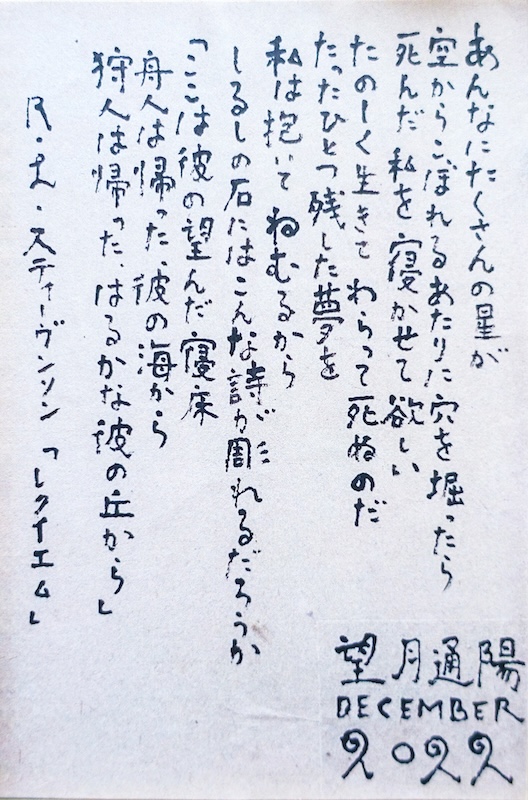 あんなにたくさんの星が
空からこぼれるあたりに穴を堀ったら
死んだ私を寝かせて欲しい
たのしく生きて わらって死ぬのだ
たったひとつ残した夢を
私は抱いて ねむるから
しるしの石にはこんな詩が彫れるだろうか
「ここは彼の望んだ寝床
舟人は帰った、彼の海から
狩人は帰った、はるかな彼の丘から」
R・L・スティーヴンソン「レクイエム」
望月通陽
DECEMBER
2022